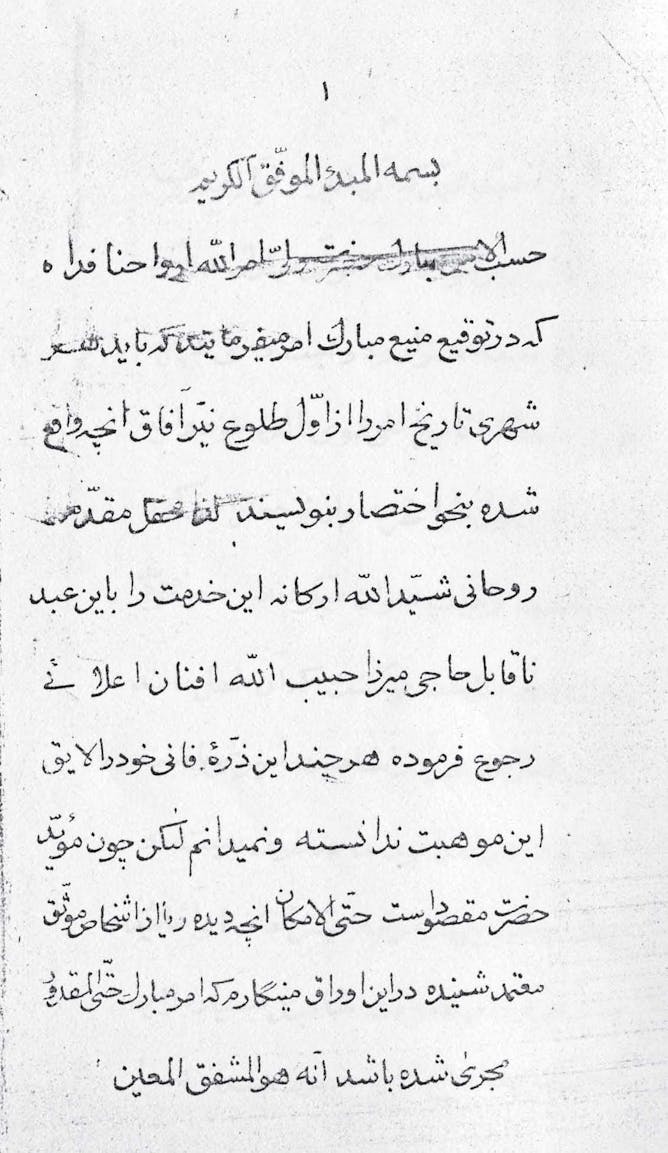 ۱
بسمه المبدء الموفّق الکریم
حسب الامر مبارك حضرت ولیّ امر الله ارواحنا فداه
که در توقیع منیع مبارك امر میفرمایند که باید
شهری تاریخ امر را از اوّل طلوع نیّر آفاق انچه واقع
شده بنحو اختصار بنویسند لذا محفل مقدّس
روحانی شیّد الله ارکانه این خدمت را باین عبد
ناقابل حاجی میرزا حبیب الله افنان اعلائی
رجوع فرموده هرچند این ذرّهٔ فانی خود را لایق
این موهبت ندانسته و نمیدانم لیکن چون مؤیّد
حضرت مقصود است حتّی الامکان انچه دیده و یا از اشخاص موثّق
معتمد شنیده در این اوراق مینگارم که امر مبارك حتّی المقدور
مجری شده باشد انّه هو المشفق المعین